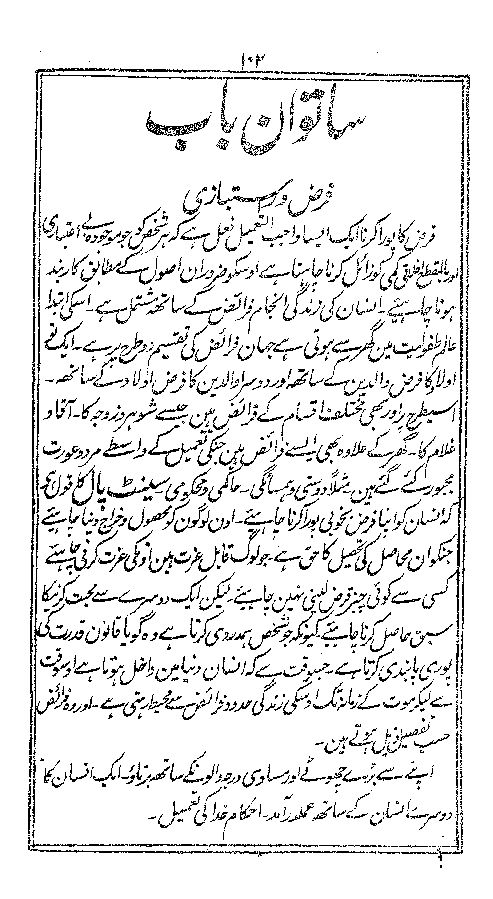 ۱۰۲
ساتواں باب
فرض و راستبازی
فرض کا پورا کرنا ایک ایسا واجب التعمیل فعل ہے کہ ہر شخص کو جو موجودہ بے اعتباری
اور بالقطع اخلاقی کمی کو زائل کرنا چاہتا ہے اوسکو ضرور ان اصول کے مطابق کاربند
ہونا چاہیئے۔ انسان کی زندگی انجام فرائض کے ساتھ مشتمل ہے۔ اسکی ابتدا
عالم طفولیت مین گھر سے ہوتی ہے جہان فرائض کی تقسیم دو طرح پر ہے۔ ایک تو
اولاد کا فرض والدین کے ساتھ اور دوسرا والدین کا فرض اولاد کے ساتھ۔
اسیطرح پر اور بھی مختلف اقسام کے فرائض ہین جیسے شوہر و زوجہ کا۔ آقا و
غلام کا۔ گھر کے علاوہ بھی ایسے فرائض ہین جنکی تعمیل کے واسطے مرد و عورت
مجبور کئے گئے ہین مثلاً دوستی و ہمسائگی۔ حاکمی و محکومی۔ سینٹ پال کا قول ہے
کہ انسان کو اپنا فرض بخوبی پورا کرنا چاہیئے۔ اون لوگون کو محصول و خراج دینا چاہیئے
جنکو ان محاصل کی تحصیل کا حق ہے۔ جو لوگ قابل عزت ہین اونکی عزت کرنی چاہیئے
کسی سے کوئی چیز قرض لینی نہین چاہیئے۔ لیکن ایک دوسرے سے محبت کرنیکا
سبق حاصل کرنا چاہیئے۔ کیونکہ جو شخص ہمدردی کرتا ہے وہ گویا قانون قدرت کی
پوری پابندی کرتا ہے۔ جسوقت سے کہ انسان دنیا مین داخل ہوتا ہے اوسوقت
سے لیکر موت کے زمانہ تک اوسکی زندگی حدود فرائض سے محیط رہتی ہے۔ اور وہ فرائض
حسب تفصیل ذیل ہوتے ہین۔
اپنے سے بڑے چھوٹے اور مساوی درجہ والونکے ساتھ برتاؤ۔ ایک انسان کا
دوسرے انسان کے ساتھ عملدرآمد۔ احکام خدا کی تعمیل۔